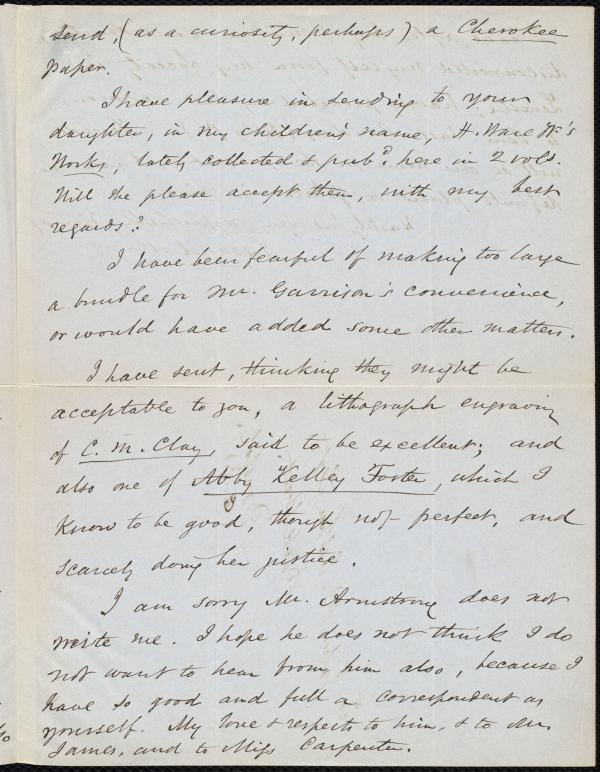 send, (as a curiosity, perhaps) a Cherokee
paper.
I have pleasure in sending to your
daughter, in my children's name, H. Ware Jr's
Works, lately collected & pubd. here in 2 vols.
Will she please accept them, with my best
regards?
I have been fearful of making too large
a bundle for Mr. Garrison's convenience,
or would have added some other matters.
I have sent, thinking they might be
acceptable to you, a lithograph engraving
of C. M. Clay, said to be excellent; and
also one of Abby Kelley Foster, which I
know to be good, though not perfect, and
scarcely doing her justice.
I am sorry Mr. Armstrong does not
write me. I hope he does not think I do
not want to hear from him also, because I
have so good and full a correspondent as
yourself. My love & respects to him, & to Mr.
James, and to Miss Carpenter.